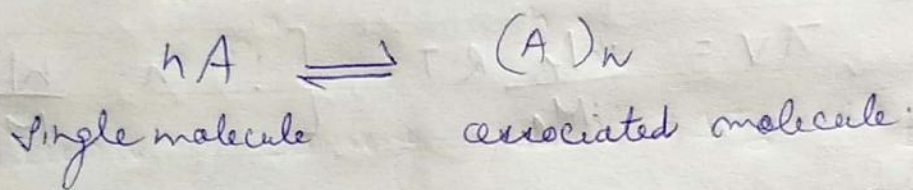 nA ⇌ (A)n
Single molecule associated molecule.